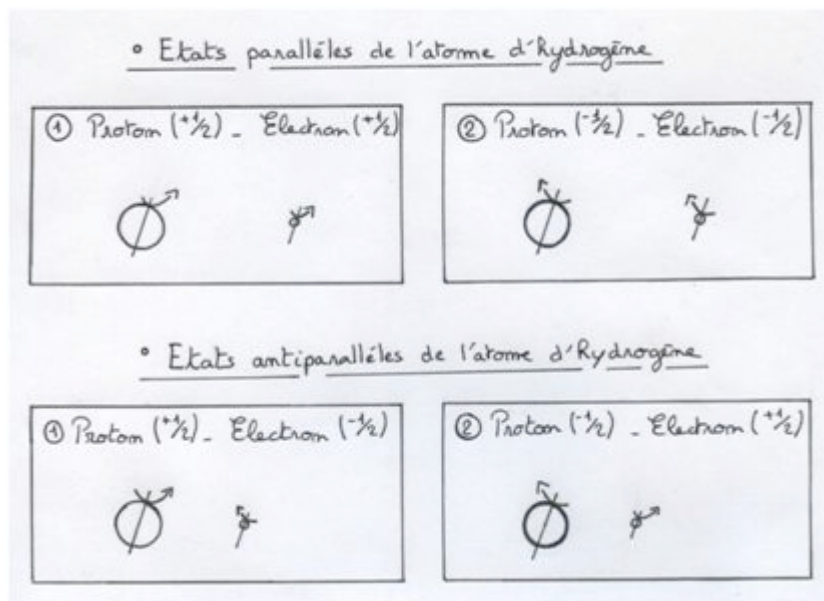 ° Etats parallèles de l'atome d'Hydrogène
① Proton (+1/2) _ Electron (+1/2)
② Proton (-1/2) _ Electron (-1/2)
° Etats antiparallèles de l'atome d'Hydrogène
① Proton (+1/2) _ Electron (-1/2)
② Proton (-1/2) _ Electron (+1/2)